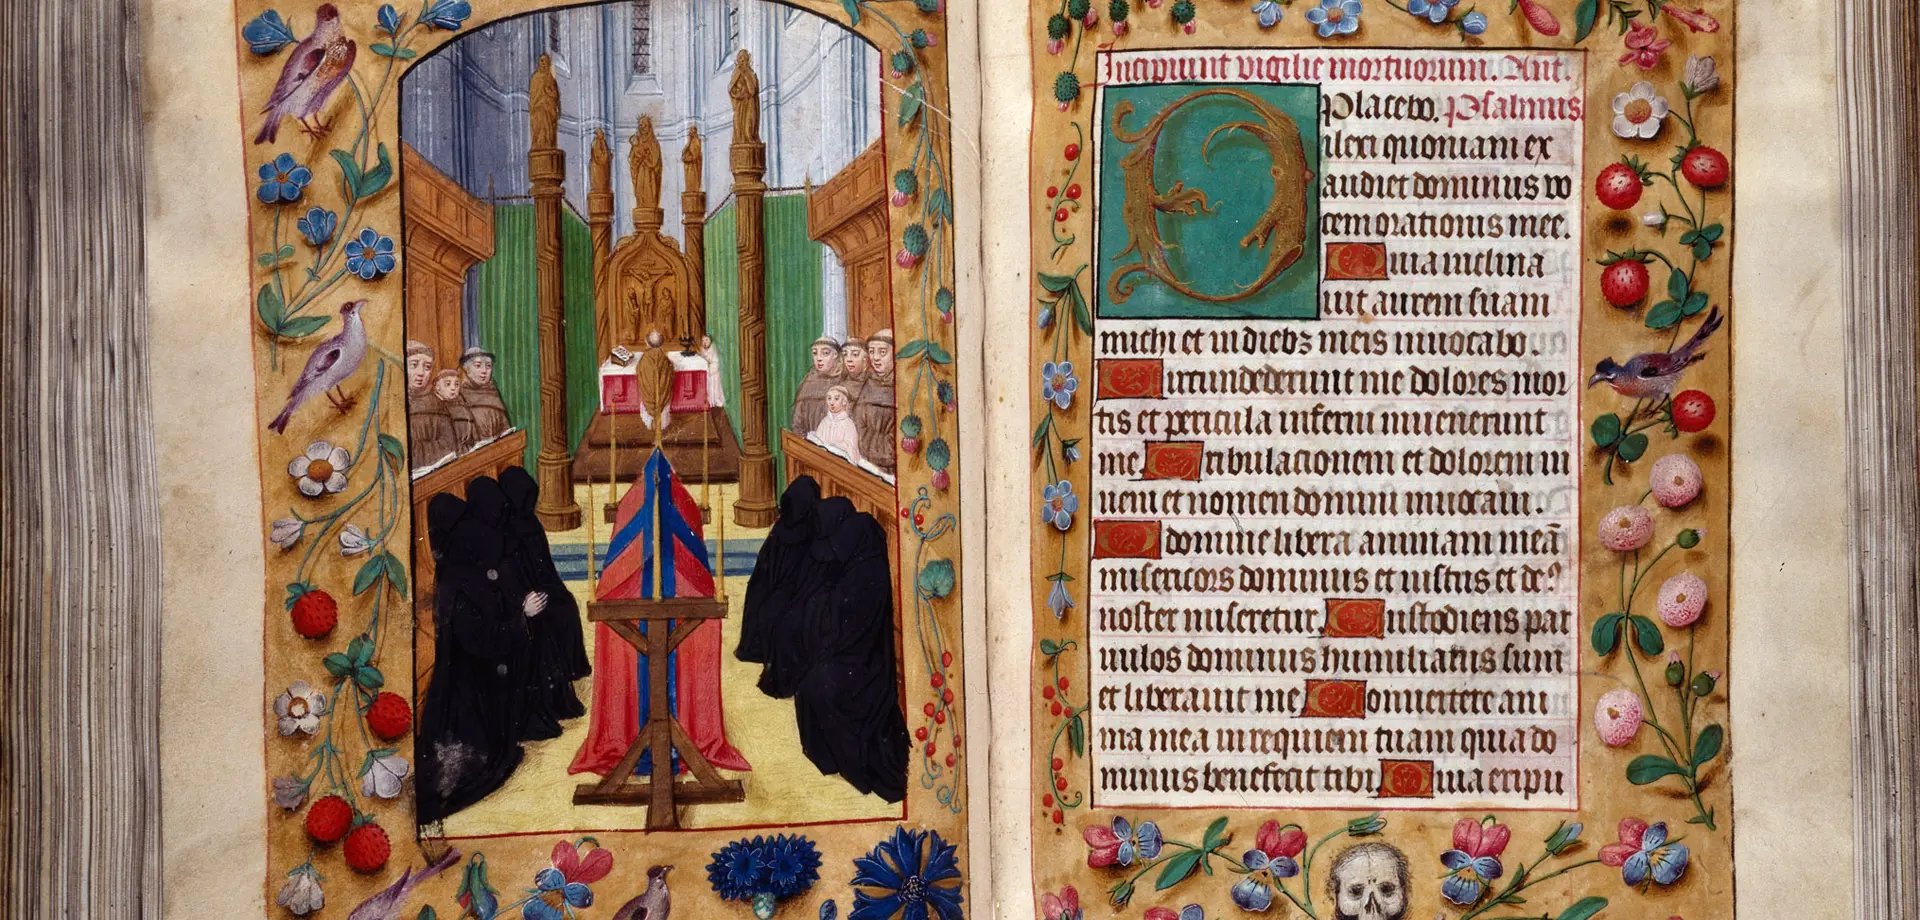 Incipiunt vigilie mortuorum. Ant.
Placebo. Psalmus.
Dilexi quoniam ex
audiet dominus vo
cem orationis mee.
Quia inclina
uit aurem suam
michi et in diebz meis inuocabo.
Circundederunt me dolores mor
tis et pericula inferni inuenerunt
me Tribulacionem et dolorem in
ueni et nomen domini inuocaui.
O domine libera animam meā
misericors dominus et iustus et de9
noster miseretur. Custodiens par
uulos dominus humiliatus sum
et liberauit me Conuertere ani
ma mea in requiem tuam quia do
minus benefecit tibi Quia eripu